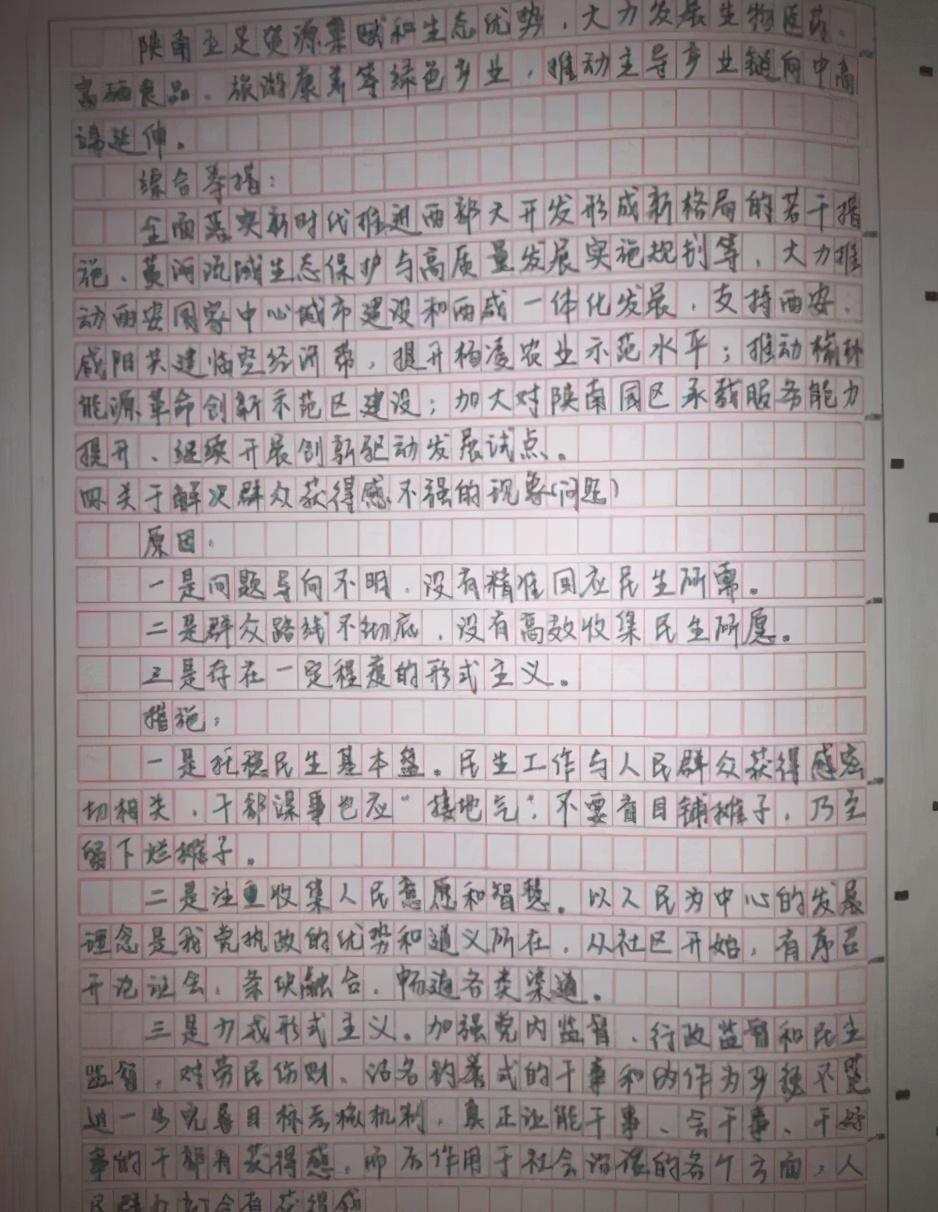 陕南立足资源禀赋和生态优势，大力发展生物医药、
富硒食品、旅游康养等绿色产业，推动主导产业链向中高
端延伸。
综合举措：
全面落实新时代推进西部大开发形成新格局的若干措
施、黄河流域生态保护与高质量发展实施规划等，大力推
动西安国家中心城市建设和西咸一体化发展，支持西安、
咸阳共建临空经济带，提升杨凌农业示范水平；推动榆林
能源革命创新示范区建设；加大对陕南园区承载服务能力
提升、继续开展创新驱动发展试点。
四关于解决群众获得感不强的现象(问题)
原因：
一是问题导向不明，没有精准回应民生所需。
二是群众路线不彻底，没有高效收集民生所愿。
三是存在一定程度的形式主义。
措施：
一是托稳民生基本盘。民生工作与人民群众获得感密
切相关，干部谋事也应“接地气”，不要盲目铺摊子，乃至
留下烂摊子。
二是注重收集人民意愿和智慧。以人民为中心的发展
理念是我党执政的优势和道义所在，从社区开始，有序召
开论证会，条块融合，畅通各类渠道。
三是力戒形式主义。加强党内监督、行政监督和民主
监督，对劳民伤财、沽名钓誉式的干事和内作为
进一步完善目标考核机制，真正让能干事、会干事、干好
事的干部有获得感，而后作用于社会治理的各个方面，人
民群众会有获得感